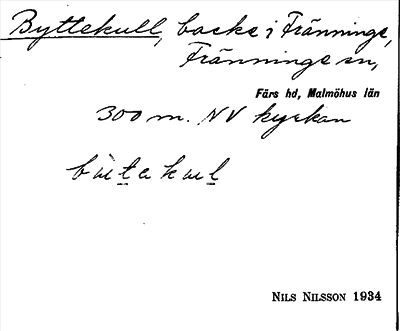 Byttekull, backe i Fränninge,
Fränninge sn,
Färs hd, Malmöhus län
300 m. NV kyrkan
NILS NILSSON 1934